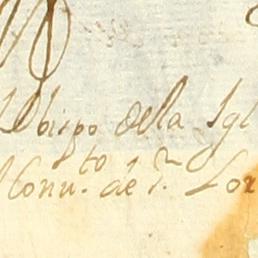 Obispo della Igl
Conu.to de S.n Lor